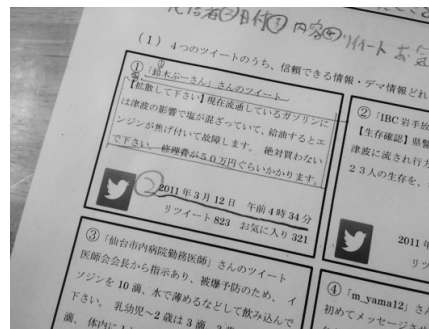 発信者② 日付③ 内容④ リツイート お気
(1) 4つのツイートのうち、信頼できる情報・デマ情報どれ
① 「鈴木ぷーさん」さんのツイート
【拡散して下さい】現在流通しているガソリンに
は津波の影響で塩が混ざっていて、給油するとエ
ンジンが焦げ付いて故障します。絶対買わない
で下さい。修理費が50万円ぐらいかかります。
2011年3月12日 午前4時34分
リツイート 823 お気に入り 321
② 「IBC岩手放
【生存確認】県警
津波に流され行方
23人の生存を、
2011年
リツ
③ 「仙台市内病院勤務医師」さんのツイート
医師会会長から指示あり、被爆予防のため、イ
ソジンを10滴、水で薄めるなどして飲み込んで
下さい。乳幼児~2歳は3滴、3歳
滴、体内に
④ 「m_yama12」さん
初めてメッセージさ